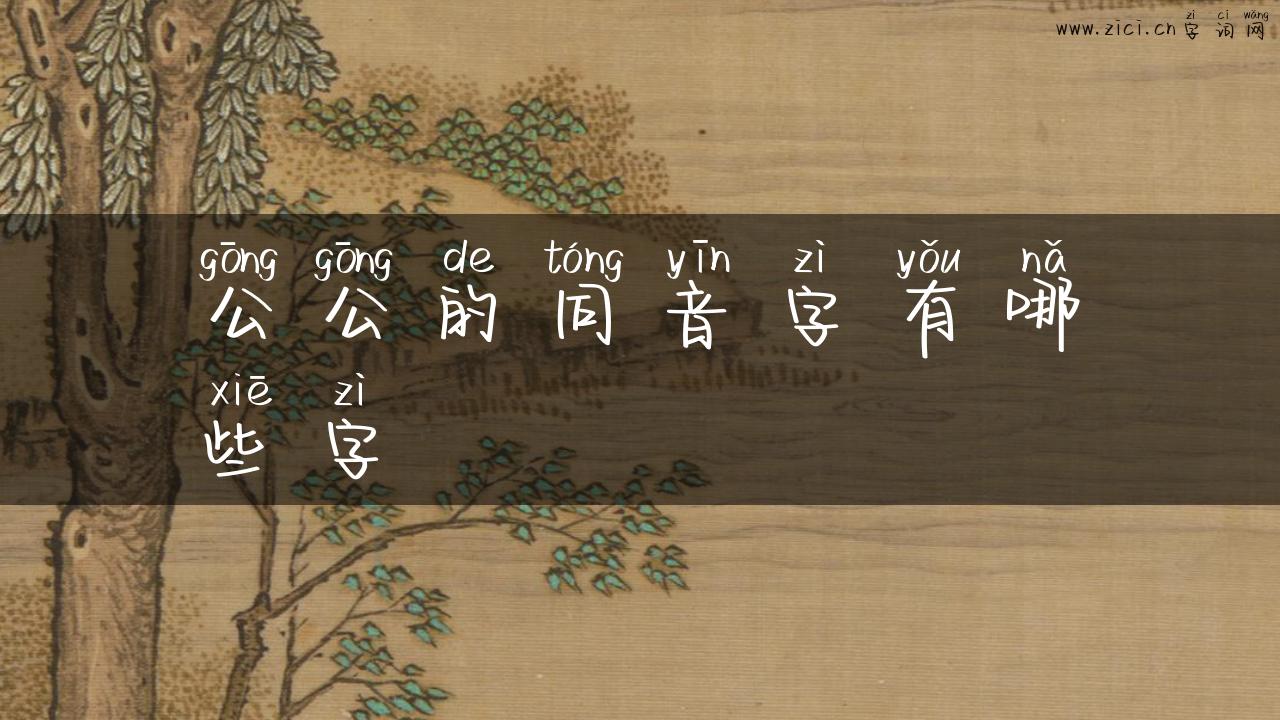 zì cí wǎng
www.zici.cn 字词网
gōng gōng de tóng yīn zì yǒu nǎ
公公的同音字有哪
xiē zì
些字